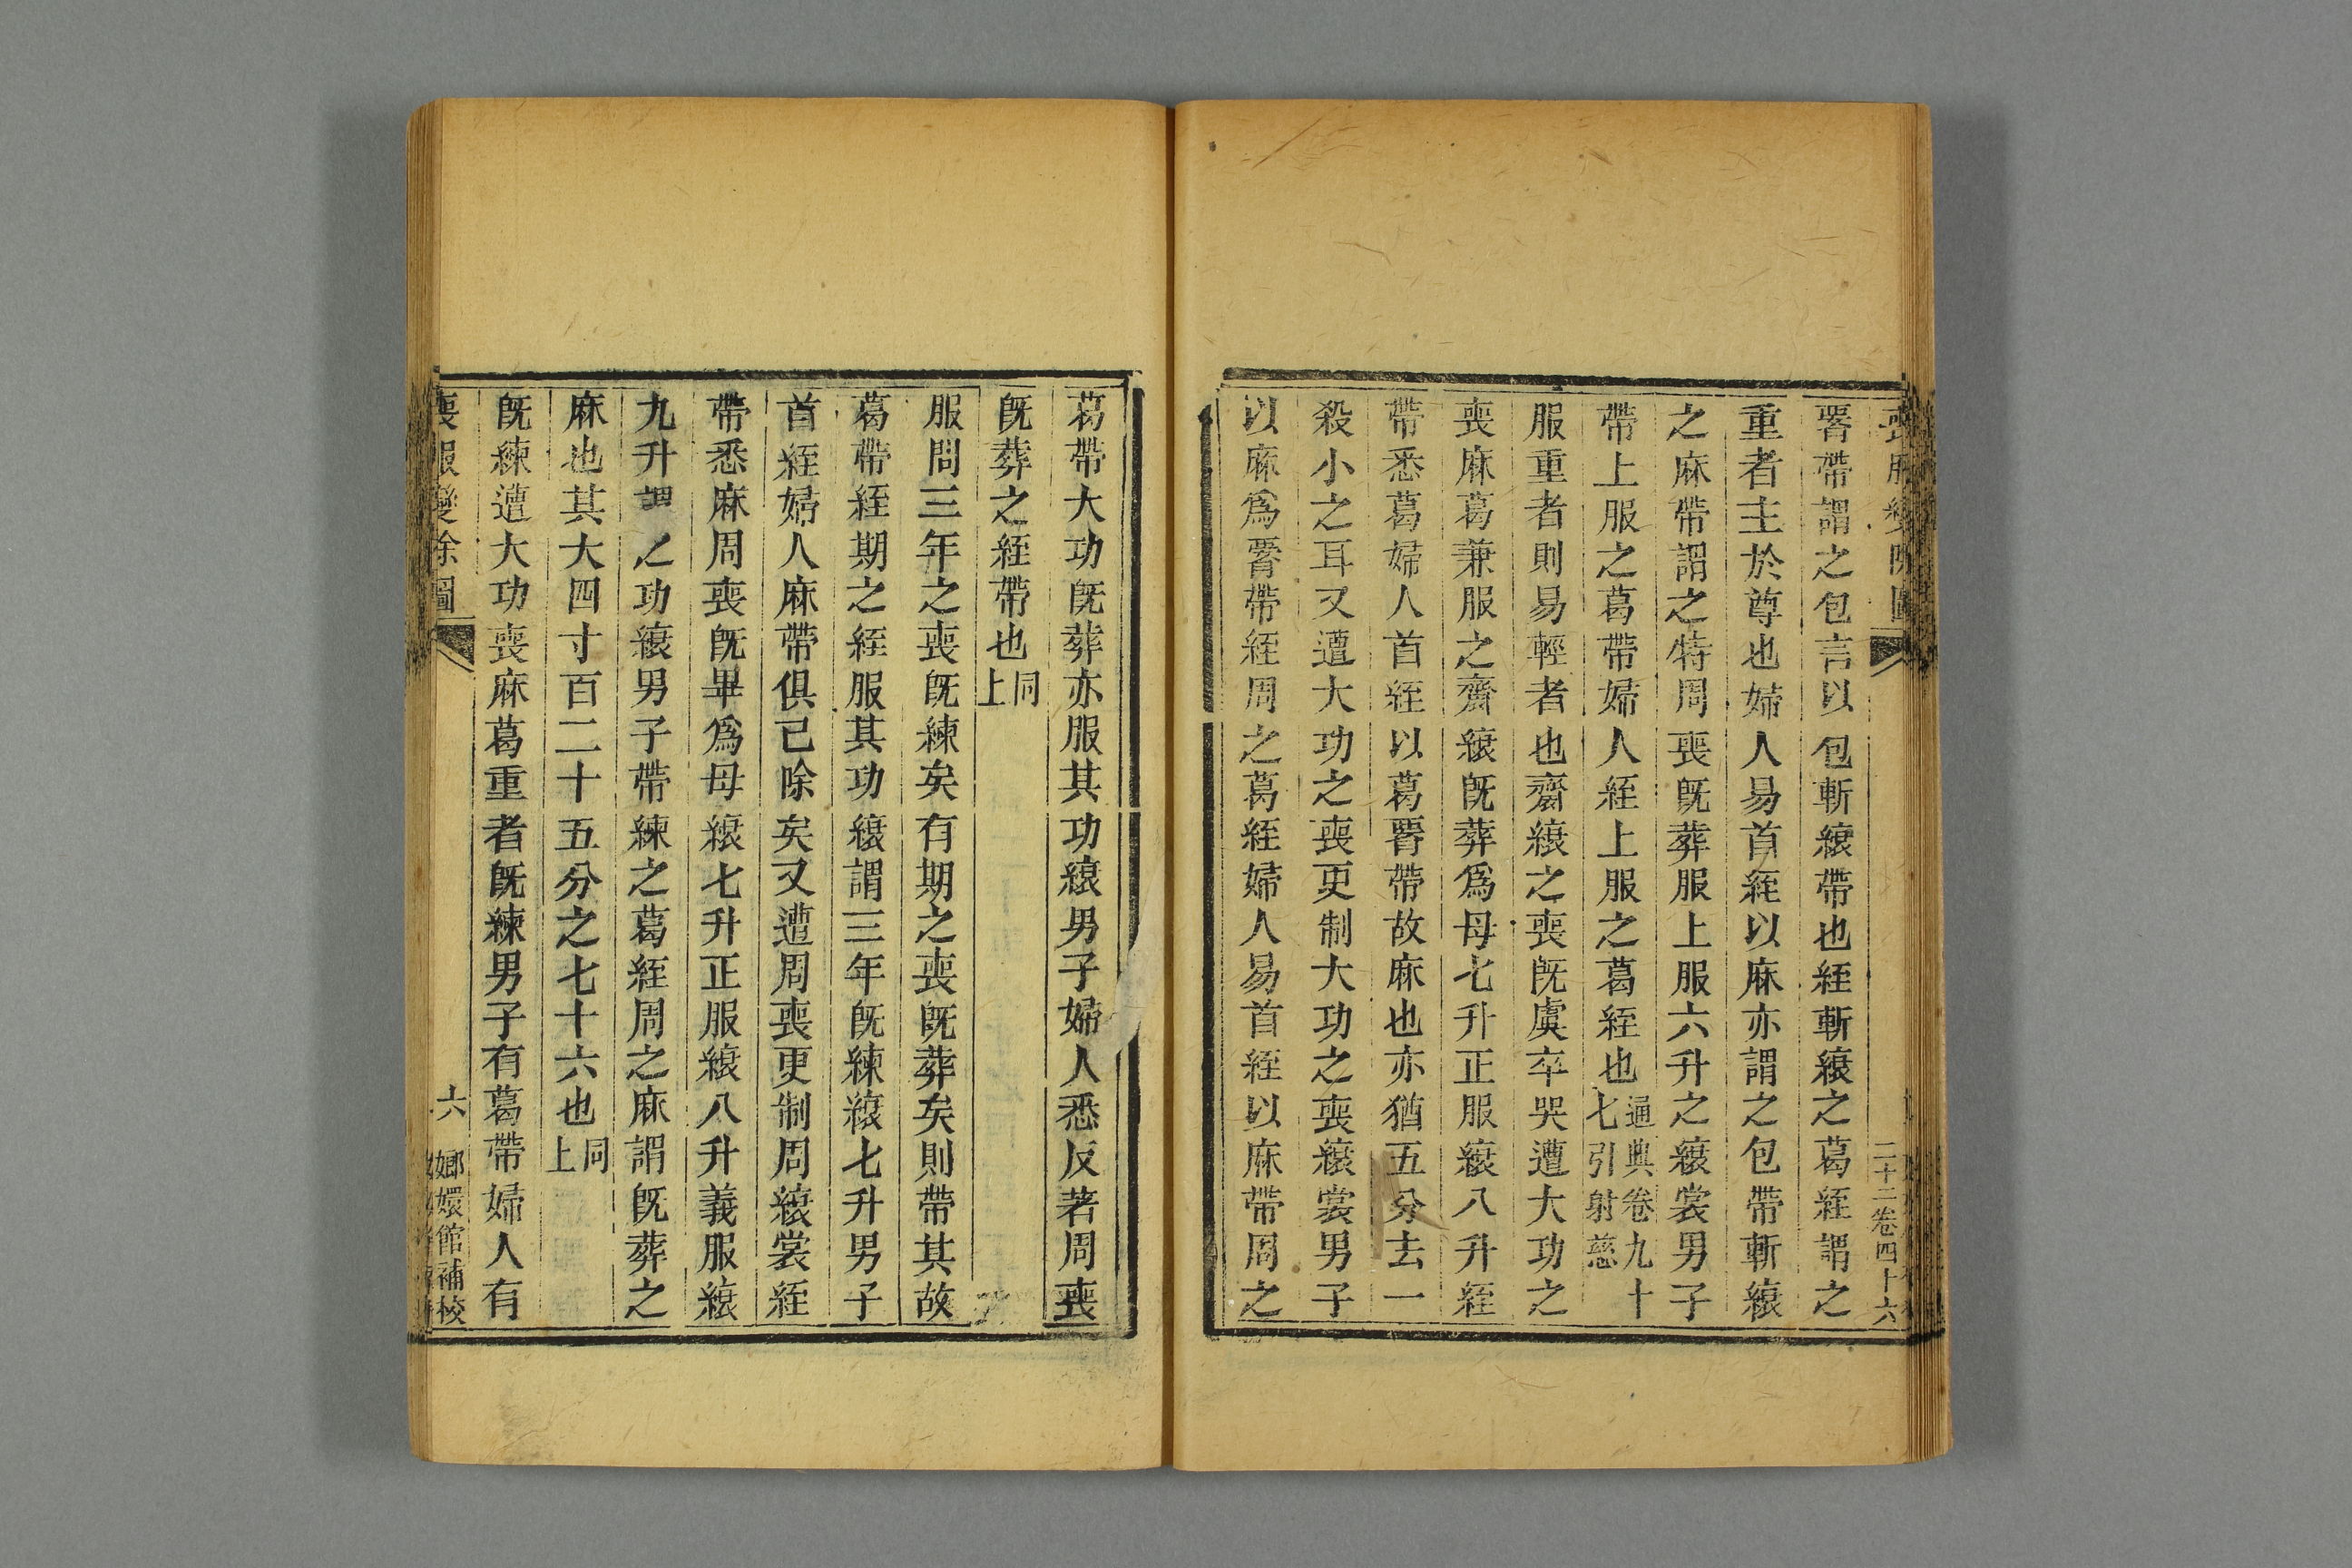 喪服變除圖
二十二卷四十六
署帶謂之包言以包斬縗帶也絰斬縗之葛絰謂之
重者主於尊也婦人易首絰以麻亦謂之包帶斬縗
之麻帶謂之特周喪既葬服上服六升之縗裳男子
帶上服之葛帶婦人絰上服之葛絰也通典卷九十
七引射慈
服重者則易輕者也齊縗之喪既虞卒哭遭大功之
喪麻葛兼服之齊縗既葬為母七升正服縗八升絰
帶悉葛婦人首絰以葛署帶故麻也亦猶五分去一
殺小之耳又遭大功之喪更制大功之喪縗裳男子
以麻為署帶絰周之葛絰婦人易首絰以麻帶周之
葛帶大功既葬亦服其功縗男子婦人悉反著周喪
既葬之絰帶也同
上
服問三年之喪既練矣有期之喪既葬矣則帶其故
葛帶絰期之絰服其功縗謂三年既練縗七升男子
首絰婦人麻帶俱已除矣又遭周喪更制周縗裳絰
帶悉麻周喪既畢為母縗七升正服縗八升義服縗
九升謂之功縗男子帶練之葛絰周之麻謂既葬之
麻也其大四寸百二十五分之七十六也同
上
既練遭大功喪麻葛重者既練男子有葛帶婦人有
喪服變除圖
六
嫏嬛館補校